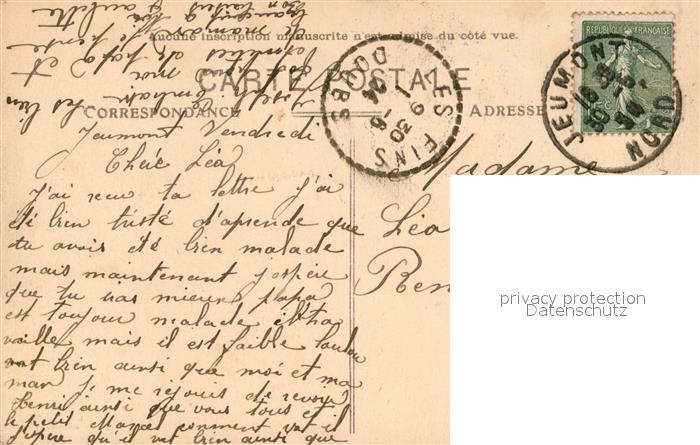 Aucune inscription manuscrite n'est admise du côté vue.
CARTE POSTALE
CORRESPONDANCE
ADRESSE
RÉPUBLIQUE FRANÇAISE
JEUMONT
NORD
LES FINS
DOUBS
9 30
Madame
Léa
Ren
privacy protection
Datenschutz
Jeumont Vendredi
Chère Léa
J'ai reçu ta lettre j'ai
été bien triste d'aprende que
tu avois été bien malade
mais maintenant j'espère
que tu vas mieux papa
est toujour malade il tra
vaille mais il est faible loulou
vat bien ainsi que moi et ma
man je me réjouis de revoir
Henri ainsi que vous tous et
le petit Marcel comment vat il
j'espère qu'il vat bien ainsi que